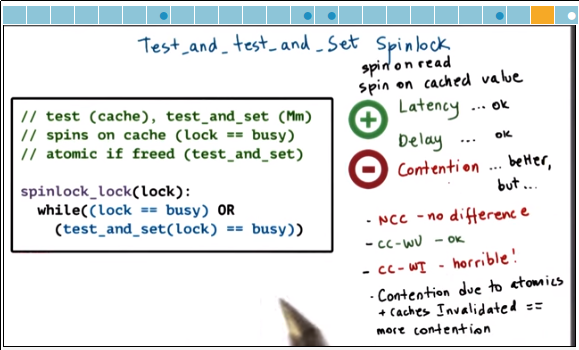 Test_and_test_and_Set Spinlock
spin on read
spin on cached value
// test (cache), test_and_set (Mm)
// spins on cache (lock == busy)
// atomic if freed (test_and_set)
spinlock_lock(lock):
while((lock == busy) OR
(test_and_set(lock) == busy))
+ Latency ... ok
Delay ... ok
- Contention ... better,
but...
- NCC - no difference
- CC-WU - OK
- CC-WI - horrible!
· Contention due to atomics
+ caches Invalidated ==
more contention